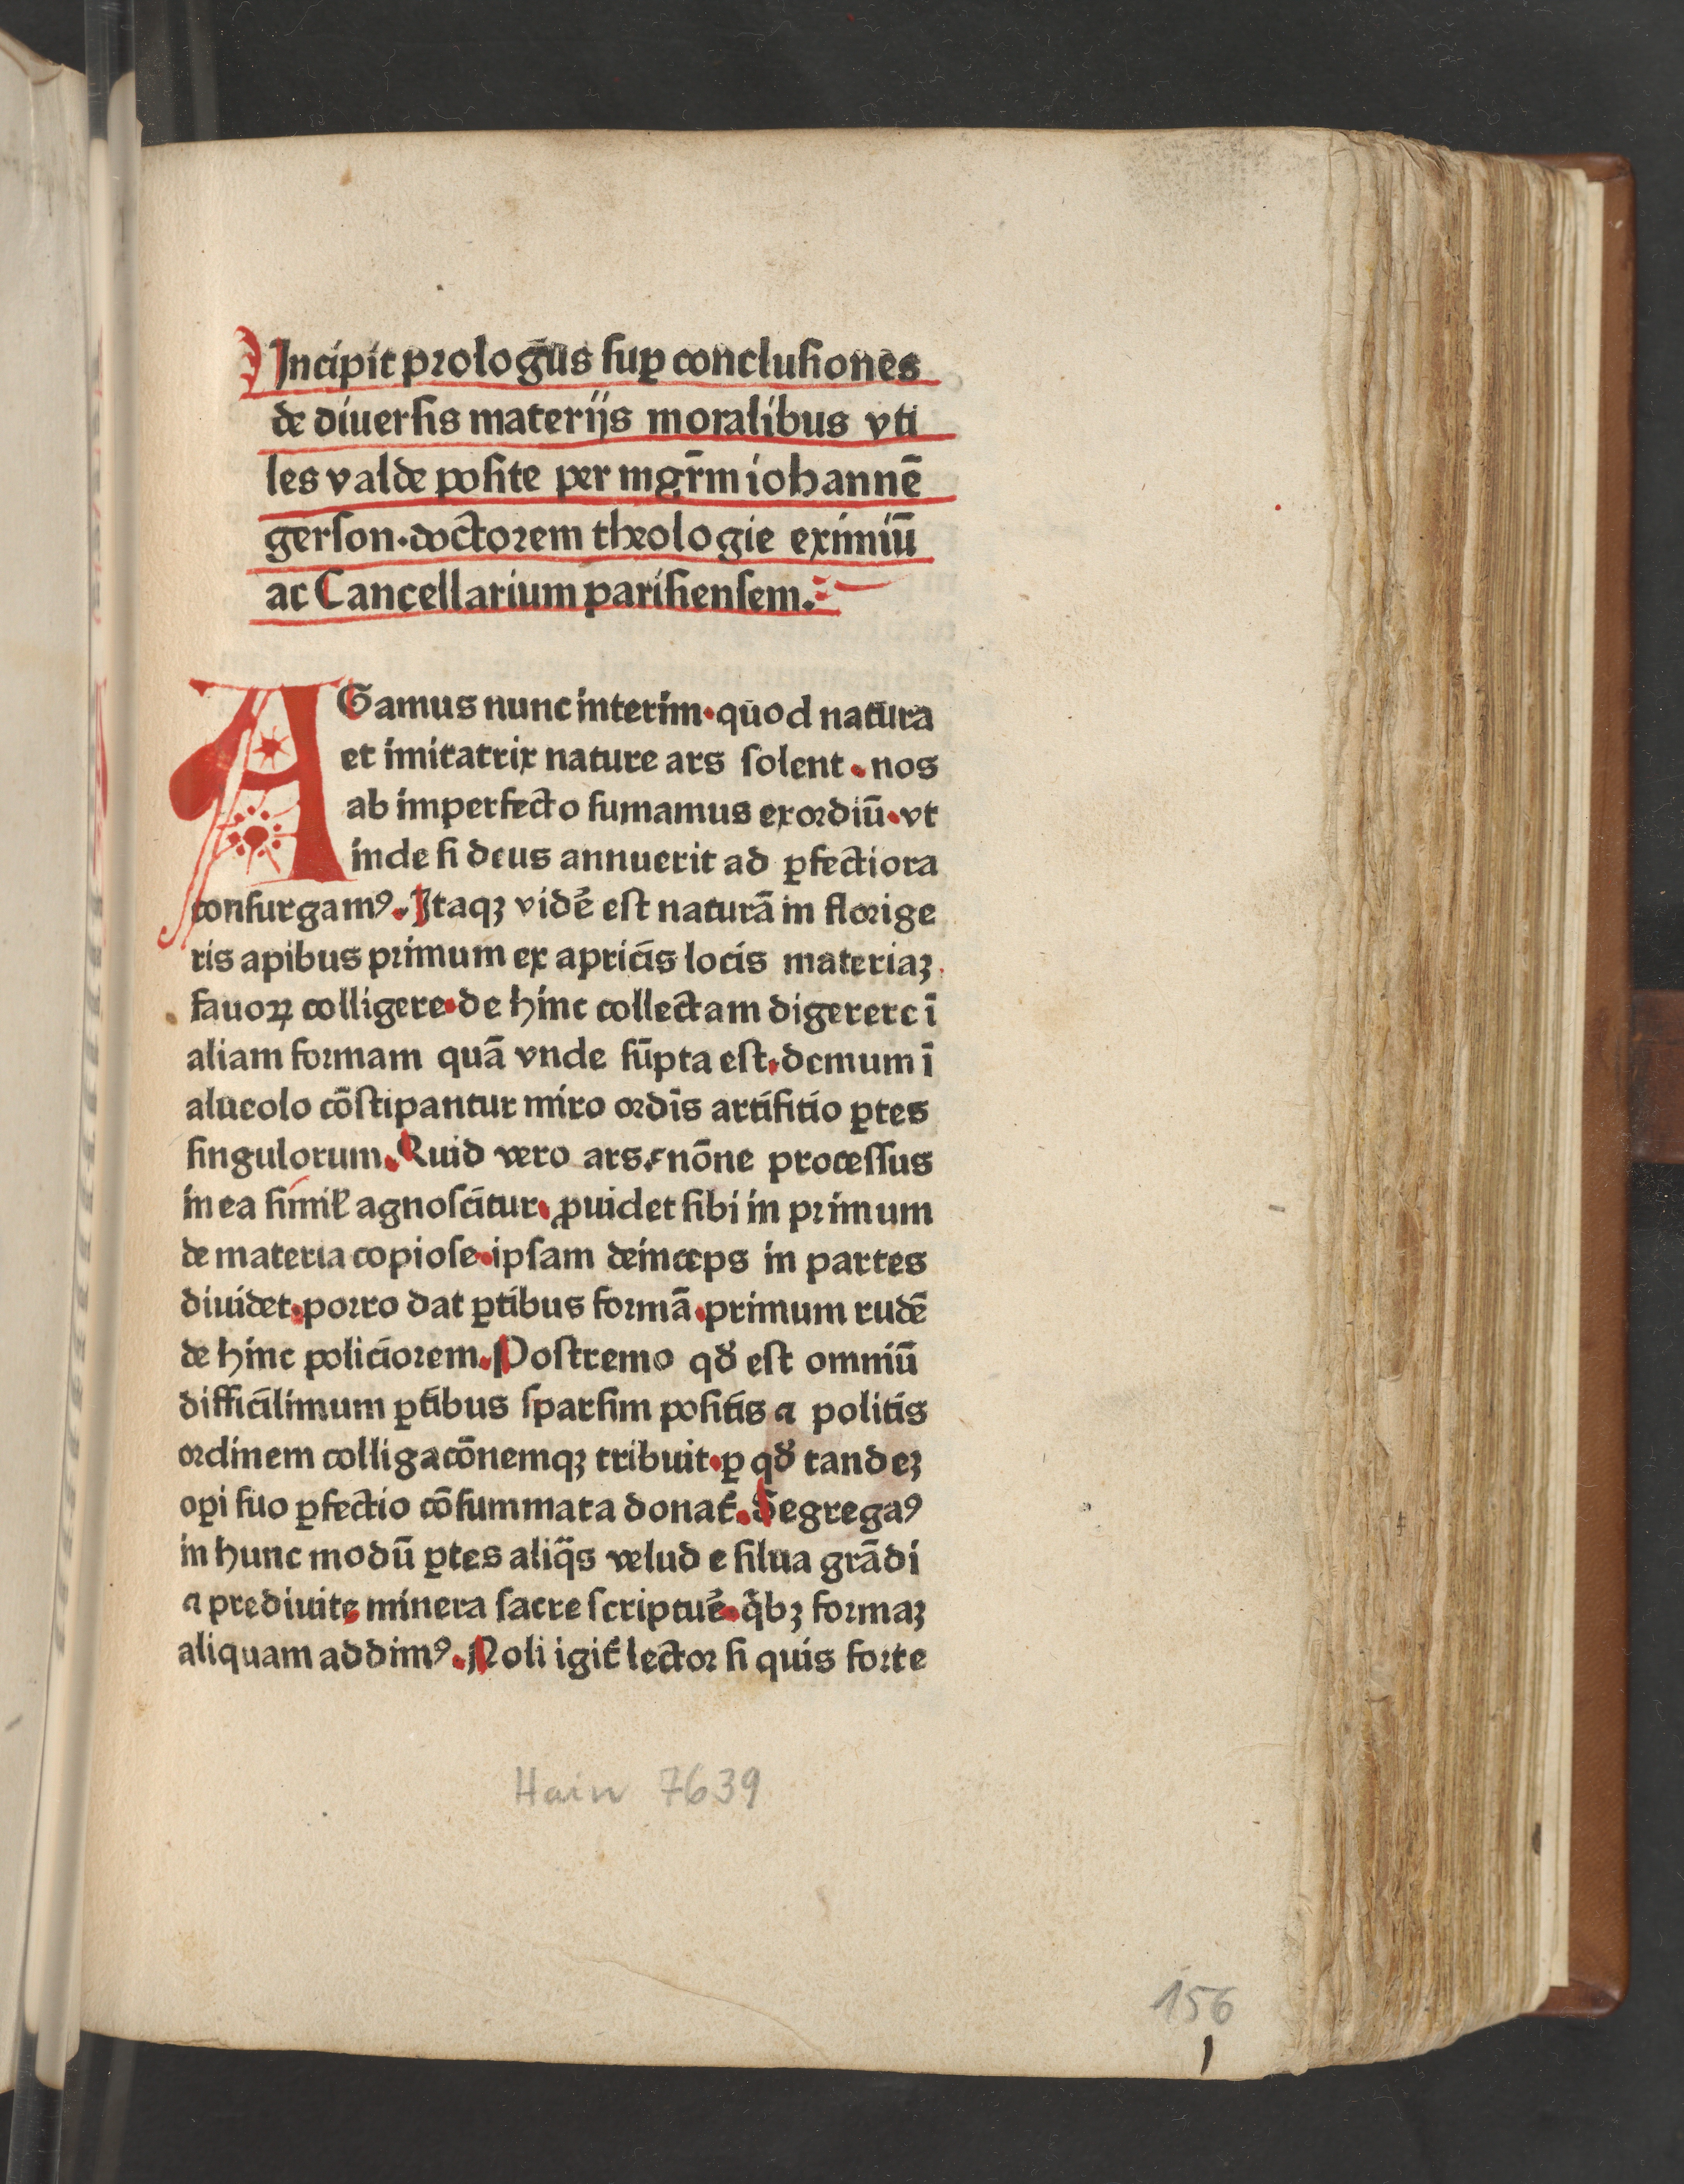 Incipit prologus sup̲ conclusiones
de diuersis materijs moralibus vti
les valde posite per mgr̄m iohannē
gerson·doctorem theologie eximiū
ac Cancellarium parisiensem.
AGamus nunc interim·quod natura
et imitatrix nature ars solent·nos
ab imperfecto sumamus exordiū·vt
inde si deus annuerit ad ꝑfectiora
consurgamꝰ. Itaqꝫ vidē est naturā in florige
ris apibus primum ex apricis locis materiaꝫ
fauoꝝ colligere·de hinc collectam digerere ī
aliam formam quā vnde sūpta est·demum ī
alueolo cōstipantur miro ordīs artifitio ꝑtes
singulorum. Quid vero ars. nōne processus
in ea simil̛ agnoscitur·ꝓuidet sibi in primum
de materia copiose·ipsam deinceps in partes
diuidet·porro dat ꝑtibus formā·primum rudē
de hinc policiorem. Postremo qđ est omniū
difficilimum ꝑtibus sparsim positis ⁊ politis
ordinem colligacōnemqꝫ tribuit·ꝑ qđ tandeꝫ
oꝑi suo ꝑfectio cōsummata donat̛. Segregaꝰ
in hunc modū ꝑtes aliq̄s velud e silua grādi
⁊ prediuite minera sacre scriptur̛e·q̄bꝫ formaꝫ
aliquam addimꝰ. Noli igit̛ lector si quis forte
Hain 7639
156
1